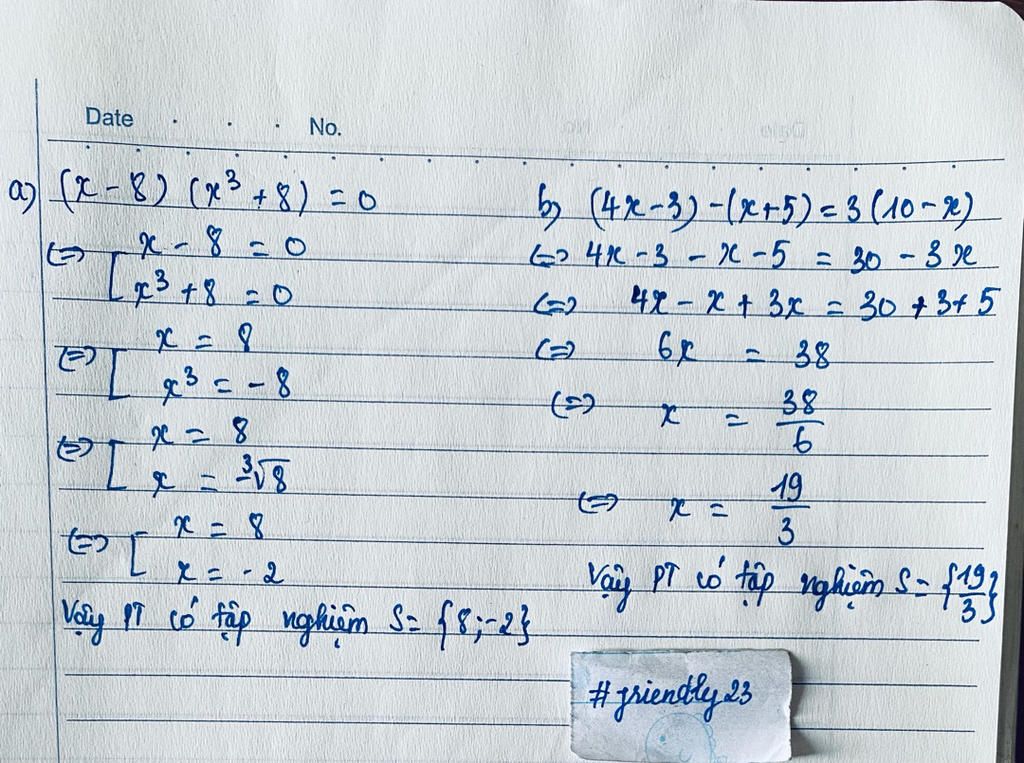 Date . . . No.
a) (x - 8) (x³ + 8) = 0
⇔ [ x - 8 = 0
x³ + 8 = 0
⇔ [ x = 8
x³ = - 8
⇔ [ x = 8
x = -∛8
⇔ [ x = 8
x = - 2
Vậy PT có tập nghiệm S = {8 ; -2}
b) (4x - 3) - (x + 5) = 3 (10 - x)
⇔ 4x - 3 - x - 5 = 30 - 3x
⇔ 4x - x + 3x = 30 + 3 + 5
⇔ 6x = 38
⇔ x = 38/6
⇔ x = 19/3
Vậy PT có tập nghiệm S = {19/3}
#friendly23